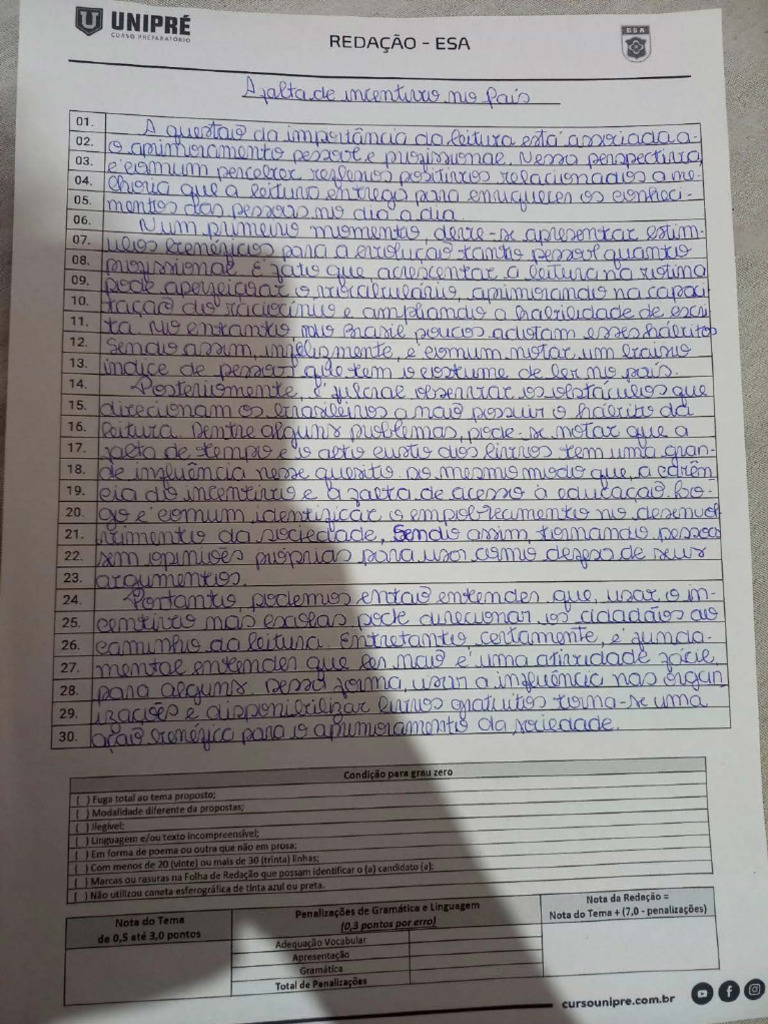 UNIPRÉ
CURSO PREPARATÓRIO
REDAÇÃO - ESA
ESA
A falta de incentivo no País
01. A questão da importância da leitura está associada a-
02. o aprimoramento pessoal e profissional. Nessa perspectiva,
03. é comum perceber reflexos positivos relacionados a me-
04. lhoria que a leitura entrega para enriquecer os conheci-
05. mentos das pessoas no dia a dia.
06. Num primeiro momento, deve-se apresentar estím-
07. ulos benéficos para a evolução tanto pessoal quanto
08. profissional. É fato que acrescentar a leitura na rotina
09. pode aperfeiçoar o vocabulário, aprimorando na capaci
10. tação do raciocínio e ampliando a habilidade de escri
11. ta. No entanto, no Brasil poucos adotam esses hábitos
12. Sendo assim, infelizmente, é comum notar um baixo
13. índice de pessoas que tem o costume de ler no país.
14. Posteriormente, é observar os obstáculos que
15. direcionam os brasileiros a não possuir o hábito da
16. leitura. Dentre alguns problemas, pode-se notar que a
17. falta de tempo e o alto custo dos livros tem uma gran-
18. de influência nesse quesito ao mesmo modo que, a carên
19. cia do incentivo e a falta de acesso à educação. Lo-
20. go é comum identificar o empobrecimento no desenvol
21. vimento da sociedade, Sendo assim, tornando pessoas
22. sem opiniões próprias para usar como defesa de seus
23. argumentos.
24. Portanto, podemos então entender que, usar o in-
25. centivo nas escolas pode direcionar os cidadãos ao
26. caminho da leitura. Entretanto, certamente, é funda-
27. mental entender que ler não é uma atividade fácil,
28. para alguns. Dessa forma, usar a influência nas organ
29. izações e disponibilizar livros gratuitos torna-se uma
30. ação benéfica para o aprimoramento da sociedade.
Condição para grau zero
( ) Fuga total ao tema proposto;
( ) Modalidade diferente da propostas;
( ) Ilegível;
( ) Linguagem e/ou texto incompreensível;
( ) Em forma de poema ou outra que não em prosa;
( ) Com menos de 20 (vinte) ou mais de 30 (trinta) linhas;
( ) Marcas ou rasuras na Folha de Redação que possam identificar o (a) candidato (a);
( ) Não utilizou caneta esferográfica de tinta azul ou preta.
Nota do Tema
de 0,5 até 3,0 pontos
Penalizações de Gramática e Linguagem
(0,3 pontos por erro)
Adequação Vocabular
Apresentação
Gramática
Total de Penalizações
Nota da Redação =
Nota do Tema + (7,0 - penalizações)
cursounipre.com.br